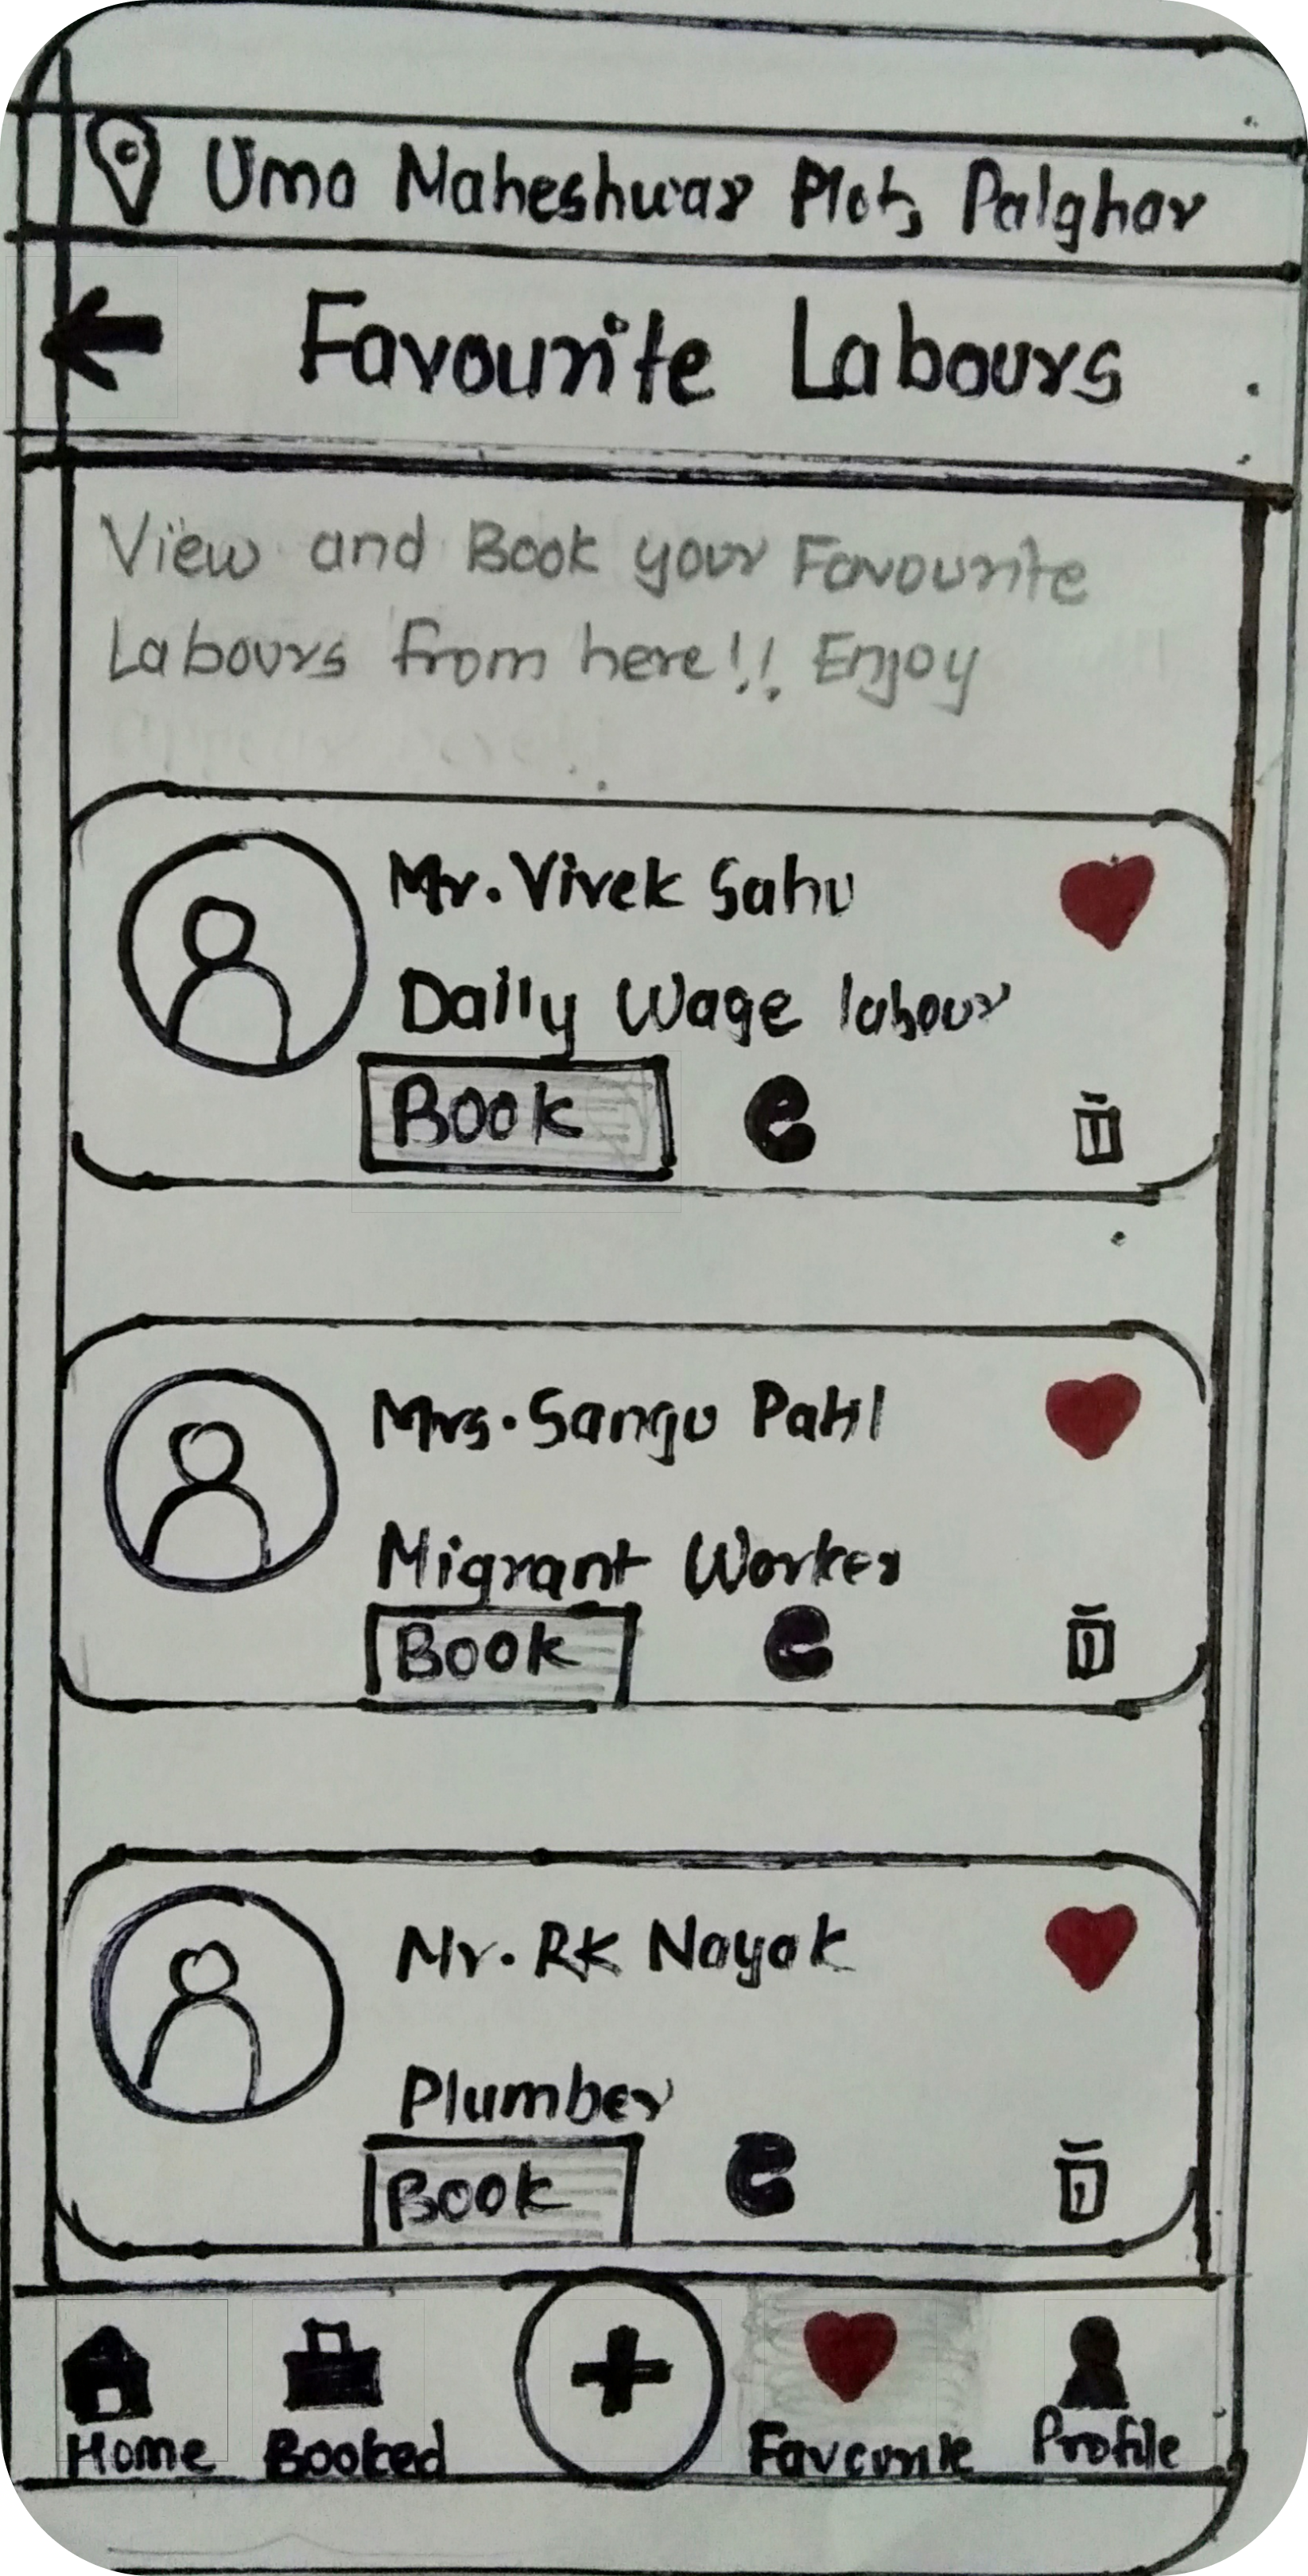 Uma Maheshwar Plot, Palghar
Favourite Labours
View and Book your Favourite
Labours from here!! Enjoy
Mr. Vivek Sahu
Daily Wage labour
Book
Mrs. Sangu Patil
Migrant Worker
Book
Mr. RK Nayak
Plumber
Book
Home Booked Favourite Profile